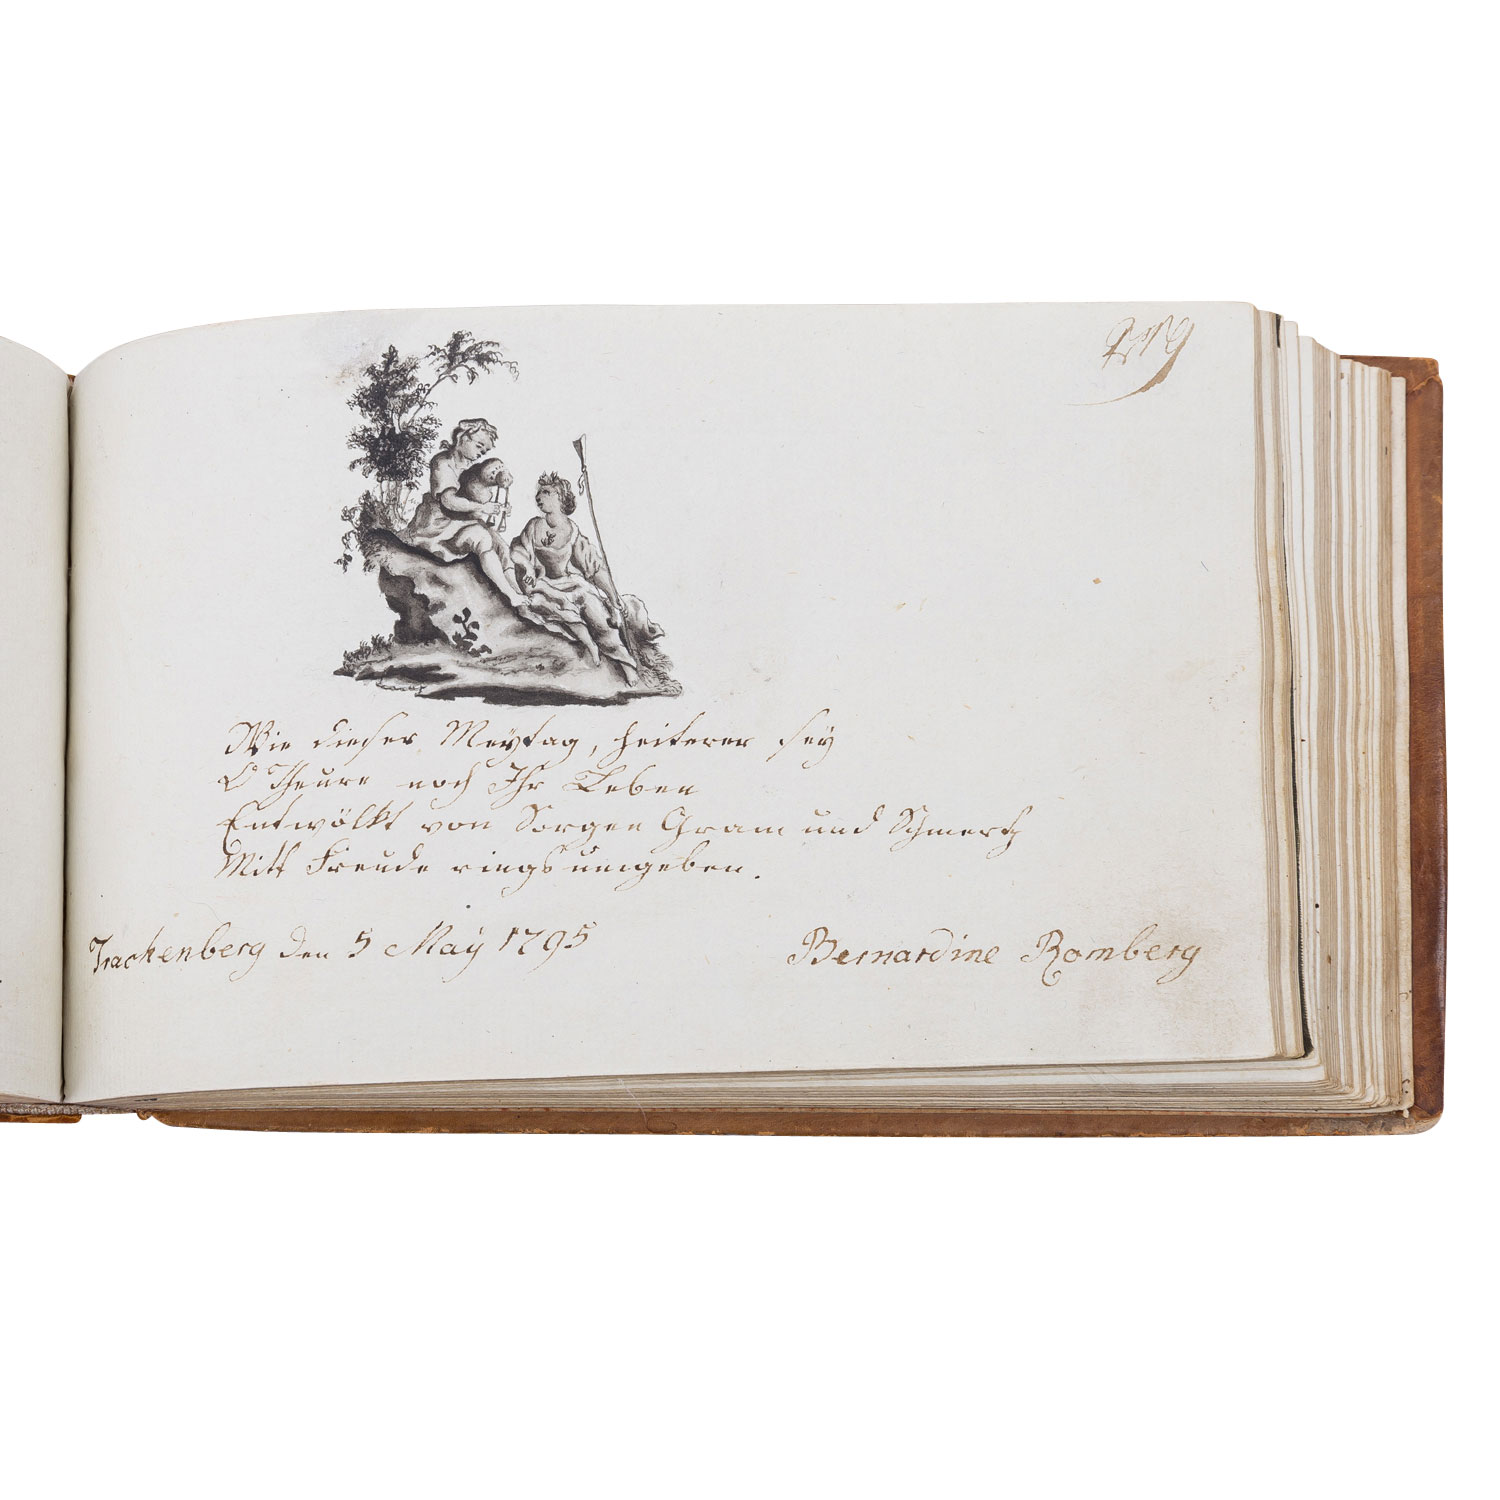 279
Wie dieser Meytag, heiterer sey
O Theure noch Ihr Leben
Entwölkt von Sorgen Gram und Schmertz
Mitt Freude rings umgeben.
Trachenberg den 5 May 1795
Bernardine Romberg